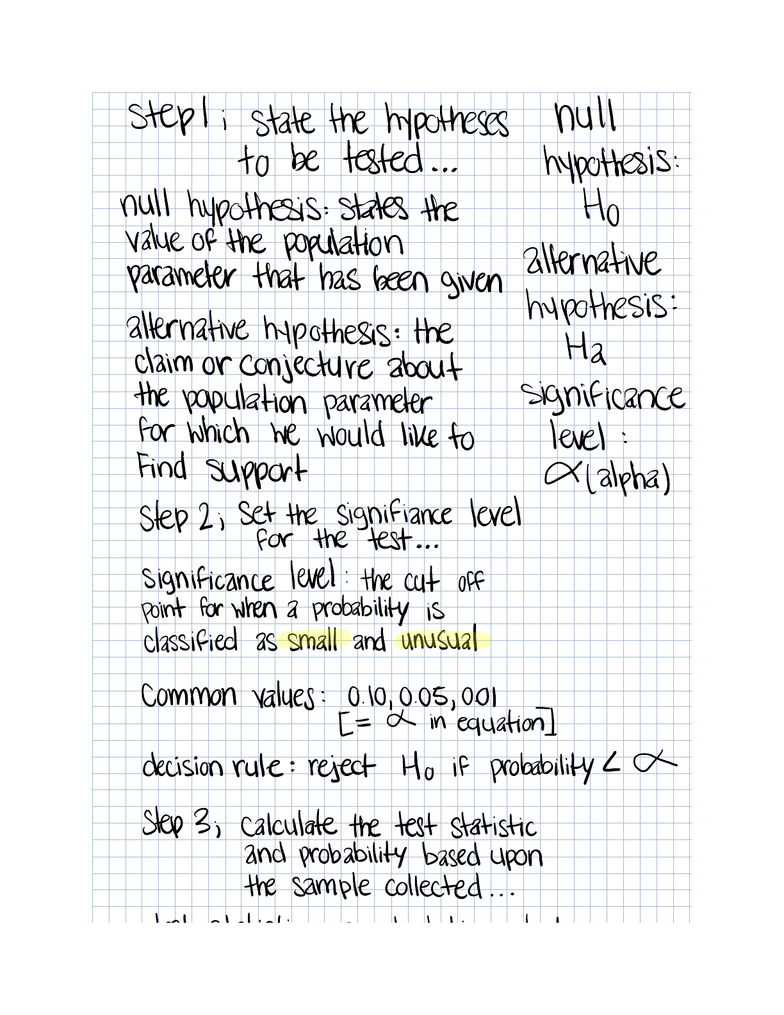 Step 1; State the hypotheses
to be tested...
null hypothesis: states the
value of the population
parameter that has been given
alternative hypothesis: the
claim or conjecture about
the population parameter
for which we would like to
Find support
null
hypothesis:
H₀
alternative
hypothesis:
Ha
significance
level:
α (alpha)
Step 2; Set the signifiance level
for the test...
Significance level: the cut off
point for when a probability is
classified as small and unusual
Common values: 0.10, 0.05, 001
[= α in equation]
decision rule: reject H₀ if probability < α
Step 3; Calculate the test statistic
and probability based upon
the sample collected...